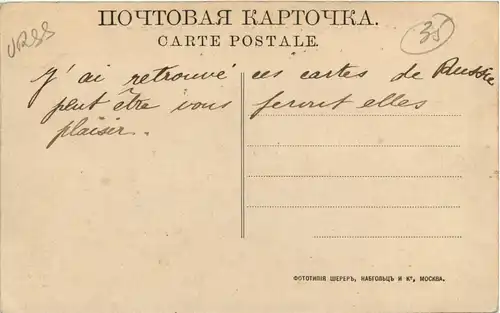 ПОЧТОВАЯ КАРТОЧКА.
CARTE POSTALE.
URSS
35
J'ai retrouvé ces cartes de Russie
peut être vous feront elles
plaisir..
ФОТОТИПІЯ ШЕРЕРЪ, НАБГОЛЬЦЪ И Кº, МОСКВА.